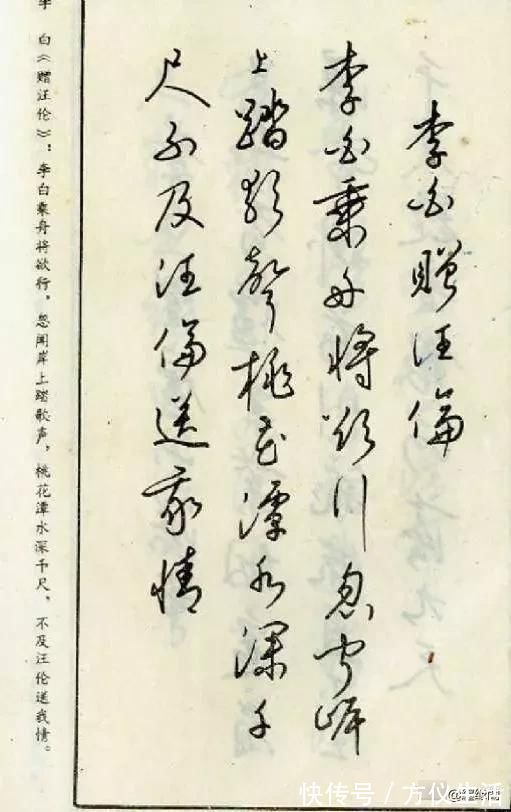 李白贈汪倫
李白乘舟將欲行忽聞岸
上踏歌聲桃花潭水深千
尺不及汪倫送我情
李 白《赠汪伦》：李白乘舟将欲行，忽闻岸上踏歌声，桃花潭水深千尺，不及汪伦送我情。
快传号／方仪生活